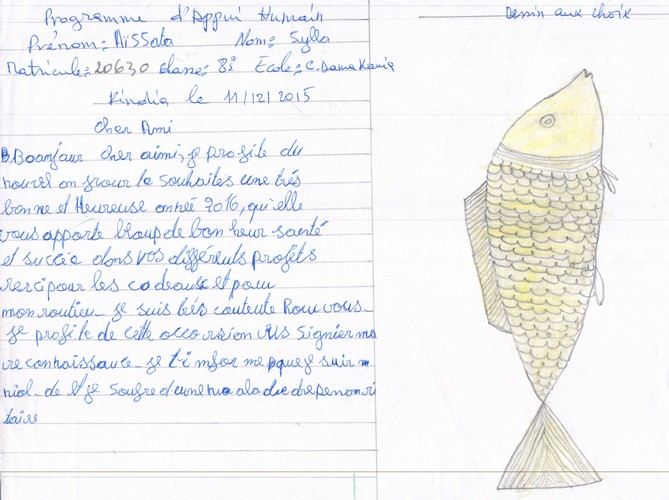 Programme d'Appui Humain
Dessin aux choix
Prénom: Aissata Nom: Sylla
Matricule: 20630 classe: 8è École: C. Dama Kania
Kindia le 11/12/2015
Cher Ami
Boonjour cher aimi, je profite du
nouvel an pour te souhaites une très
bonne et Heureuse année 2016, qu'elle
vous apporte bĺoup de bon heur santé
et succée dans vos différents profets
rerci pour les cadeause et pour
mon routieu - je suis très contente Pour vous -
je profite de cette occorsion vus signier ma
reconnaissance - je t'imfor me que je suir m
niol - de et je soufre d'une ma ala die drepenom ri
taire